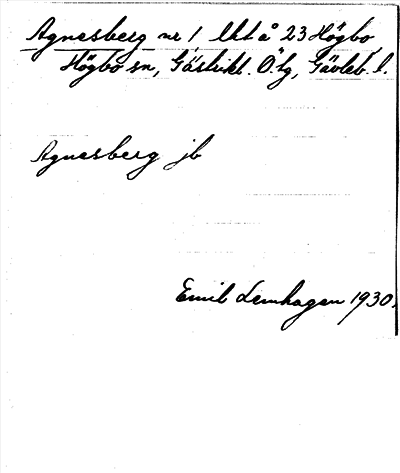 Agnesberg nr 1 lht å 23 Högbo,
Högbo sn, Gästrikl. Ö. tg, Gävleb. l.
Agnesberg jb
Emil Lemhagen 1930.